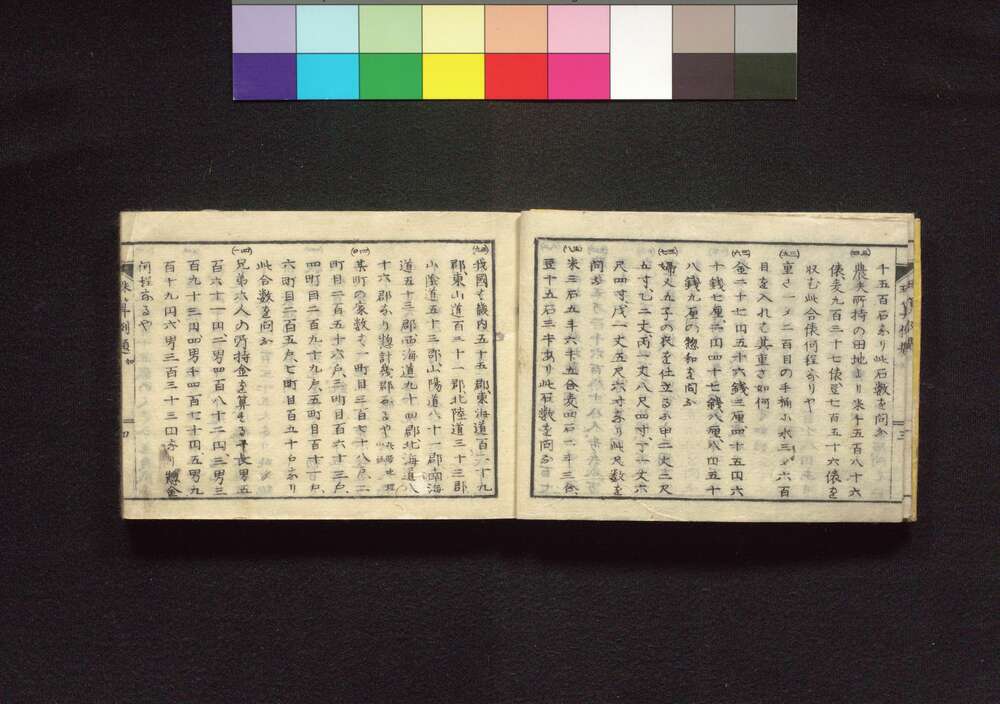 千五百石なり此石数を問ふ
農夫所持の田地より米千五百八十六
俵麦九百三十七俵豆七百五十六俵を
収む此合俵何程なりや
重さ一〆二百目の手桶に水三〆六百
目を入れも其重さ如何
金二十七円五十六銭三厘四十五円六
十銭七厘二円四十七銭八厘
八銭九厘の惣和を問ふ
婦人五子の衣を仕立るに甲二丈三尺
五寸乙二丈丙一丈八尺四寸丁一丈六
尺四寸戊一丈五尺六寸なり此尺数を
問ふ
米三石五斗六升五合麦四石一斗三合
豆十五石三斗あり此石数を問ふ
我國を畿内五十五郡東海道百二十九
郡東山道百三十一郡北陸道三十三郡
山陰道五十三郡山陽道八十一郡南海
道五十三郡西海道九十四郡北海道八
十六郡なり惣計幾郡なるや
某町の家数を一町目三百七十八戸二
町目二百五十六戸三町目百六十三戸
四町目二百九十九戸五町目百十一戸
六町目二百五戸七町目百五十戸なり
此合数を問ふ
兄弟六人の所持金を算するに長男五
百六十一円二男四百八十二円三男三
百九十三円四男千四百七十円五男九
百十九円六男三百三十三円なり惣金
何程なるや